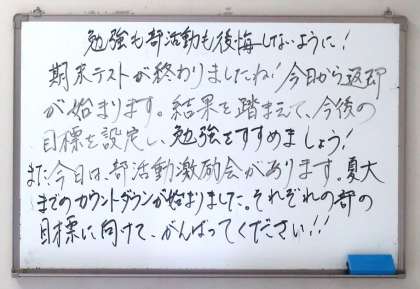 勉強も部活動も後悔しないように!
期末テストが終わりましたね!今日から返却
が始まります。結果を踏まえて、今後の
目標を設定し、勉強をすすめましょう!
また、今日は、部活動激励会があります。夏大
までのカウントダウンが始まりました。それぞれの部の
目標に向けて、がんばってください!!